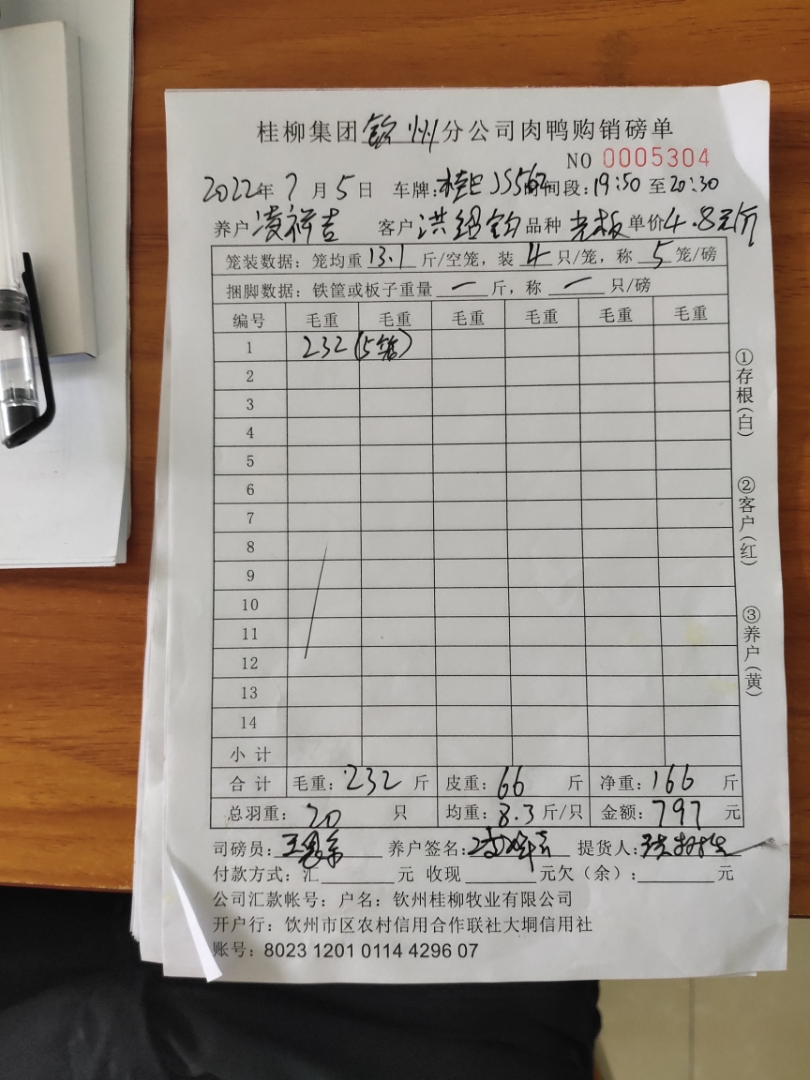 桂柳集团钦州分公司肉鸭购销磅单
NO 0005304
2022年7月5日 车牌:桂E 时间段:19:50至20:30
养户凌祥吉 客户洪绍钧品种老板单价4.8元/斤
笼装数据:笼均重13.1斤/空笼,装4只/笼,称5笼/磅
捆脚数据:铁筐或板子重量一斤,称一只/磅
编号 毛重 毛重 毛重 毛重 毛重 毛重
1 232(5笼)
2
3
4
5
6
7
8
9
10
11
12
13
14
小计
合计 毛重:232斤 皮重:66斤 净重:166斤
总羽重:20只 均重:8.3斤/只 金额:797元
司磅员: 养户签名: 提货人:
付款方式:汇 元 收现 元欠(余): 元
公司汇款帐号:户名:钦州桂柳牧业有限公司
开户行:饮州市区农村信用合作联社大垌信用社
账号:8023 1201 0114 4296 07
①存根(白)
②客户(红)
③养户(黄)